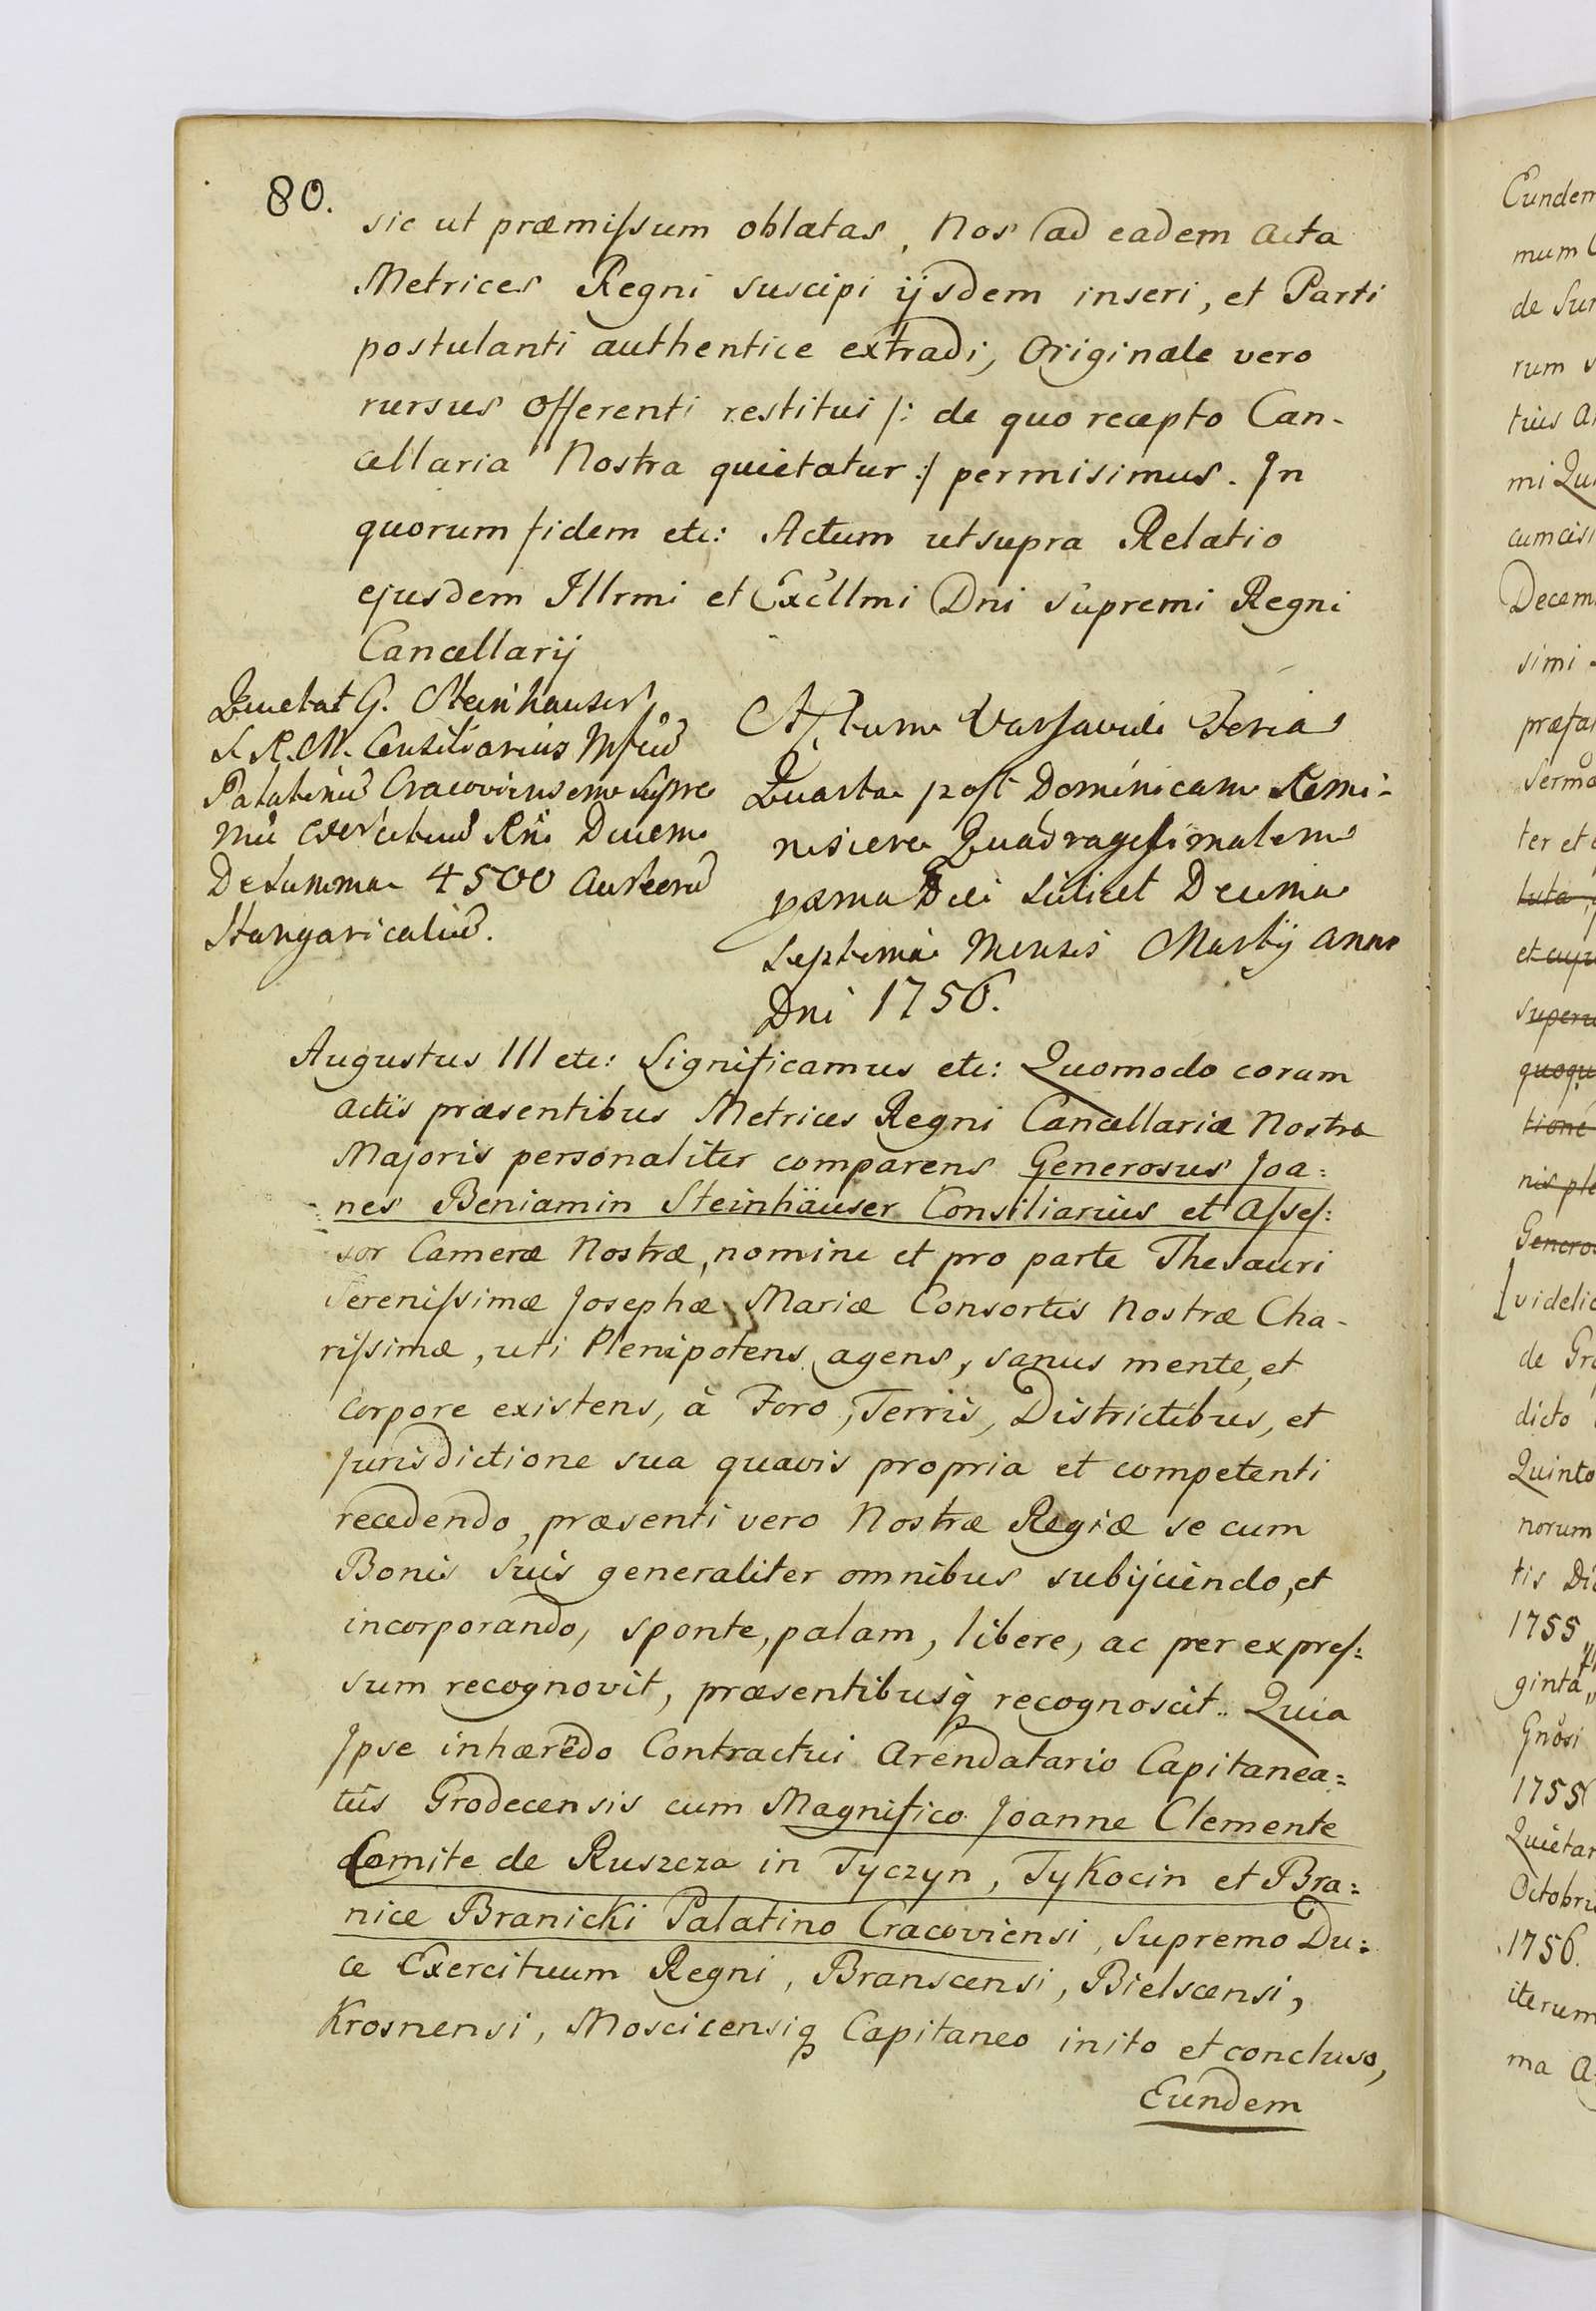 80.
sic ut præmissum oblatas, Nos ad eadem Acta
Metrices Regni suscipi ijsdem inseri, et Parti
postulanti authentice extradi, Originale vero
rursus Offerenti restitui /: de quo recepto Can-
cellaria Nostra quietatur :/ permisimus. In
quorum fidem etc: Actum ut supra Relatio
ejusdem Illrmi et Excellmi Dni Supremi Regni
Cancellarij
Quietat G. Steinhauser
S. R. M. Consiliarius Mfcū
Palatinū Cracoviensem Supre
mū Exercituū Rni Ducem
De Summa 4500 Aureorū
Hungaricaliū.
Actum Varsaviæ Feria
Quarta post Dominicam Remi-
niscere Quadragesimalem
proxima Die scilicet Decima
Septima Mensis Martij Anno
Dni 1756.
Augustus III etc: Significamus etc: Quomodo coram
Actis præsentibus Metrices Regni Cancellariæ Nostræ
Majoris personaliter comparens Generosus Joa=
nes Beniamin Steinhäuser Consiliarius et Asses=
sor Cameræ Nostræ, nomine et pro parte Thesauri
Serenissimæ Josephæ Mariæ Consortis Nostræ Cha-
rissimæ, uti Plenipotens agens, sanus mente, et
corpore existens, à Foro, Terris, Districtibus, et
Jurisdictione sua quavis propria et competenti
recedendo, præsenti vero Nostræ Regiæ se cum
Bonis Suis generaliter omnibus subijciendo, et
incorporando, sponte, palam, libere, ac per expres=
sum recognovit, præsentibusq̨ recognoscit. Quia
Ipse inhærēdo Contractui Arendatario Capitanea=
tûs Grodecensis cum Magnifico Joanne Clemente
Comite de Ruszcza in Tyczyn, Tykocin et Bra=
nice Branicki Palatino Cracoviensi, Supremo Du=
ce Exercituum Regni, Branscensi, Bielscensi,
Krosnensi, Moscicensiq̨ Capitaneo inito et concluso,
Eundem
Eundem
mum
de Su
rum
tius
mi
Decem
simi
ter et
luta
super
quoqu
tione
nis ple
Genero
videlic
de Gr
dicto
Quinto
norum
tis Di
1755
ginta
Gnosi
1755
Quietan
Octobri
1756.
iterum
ma